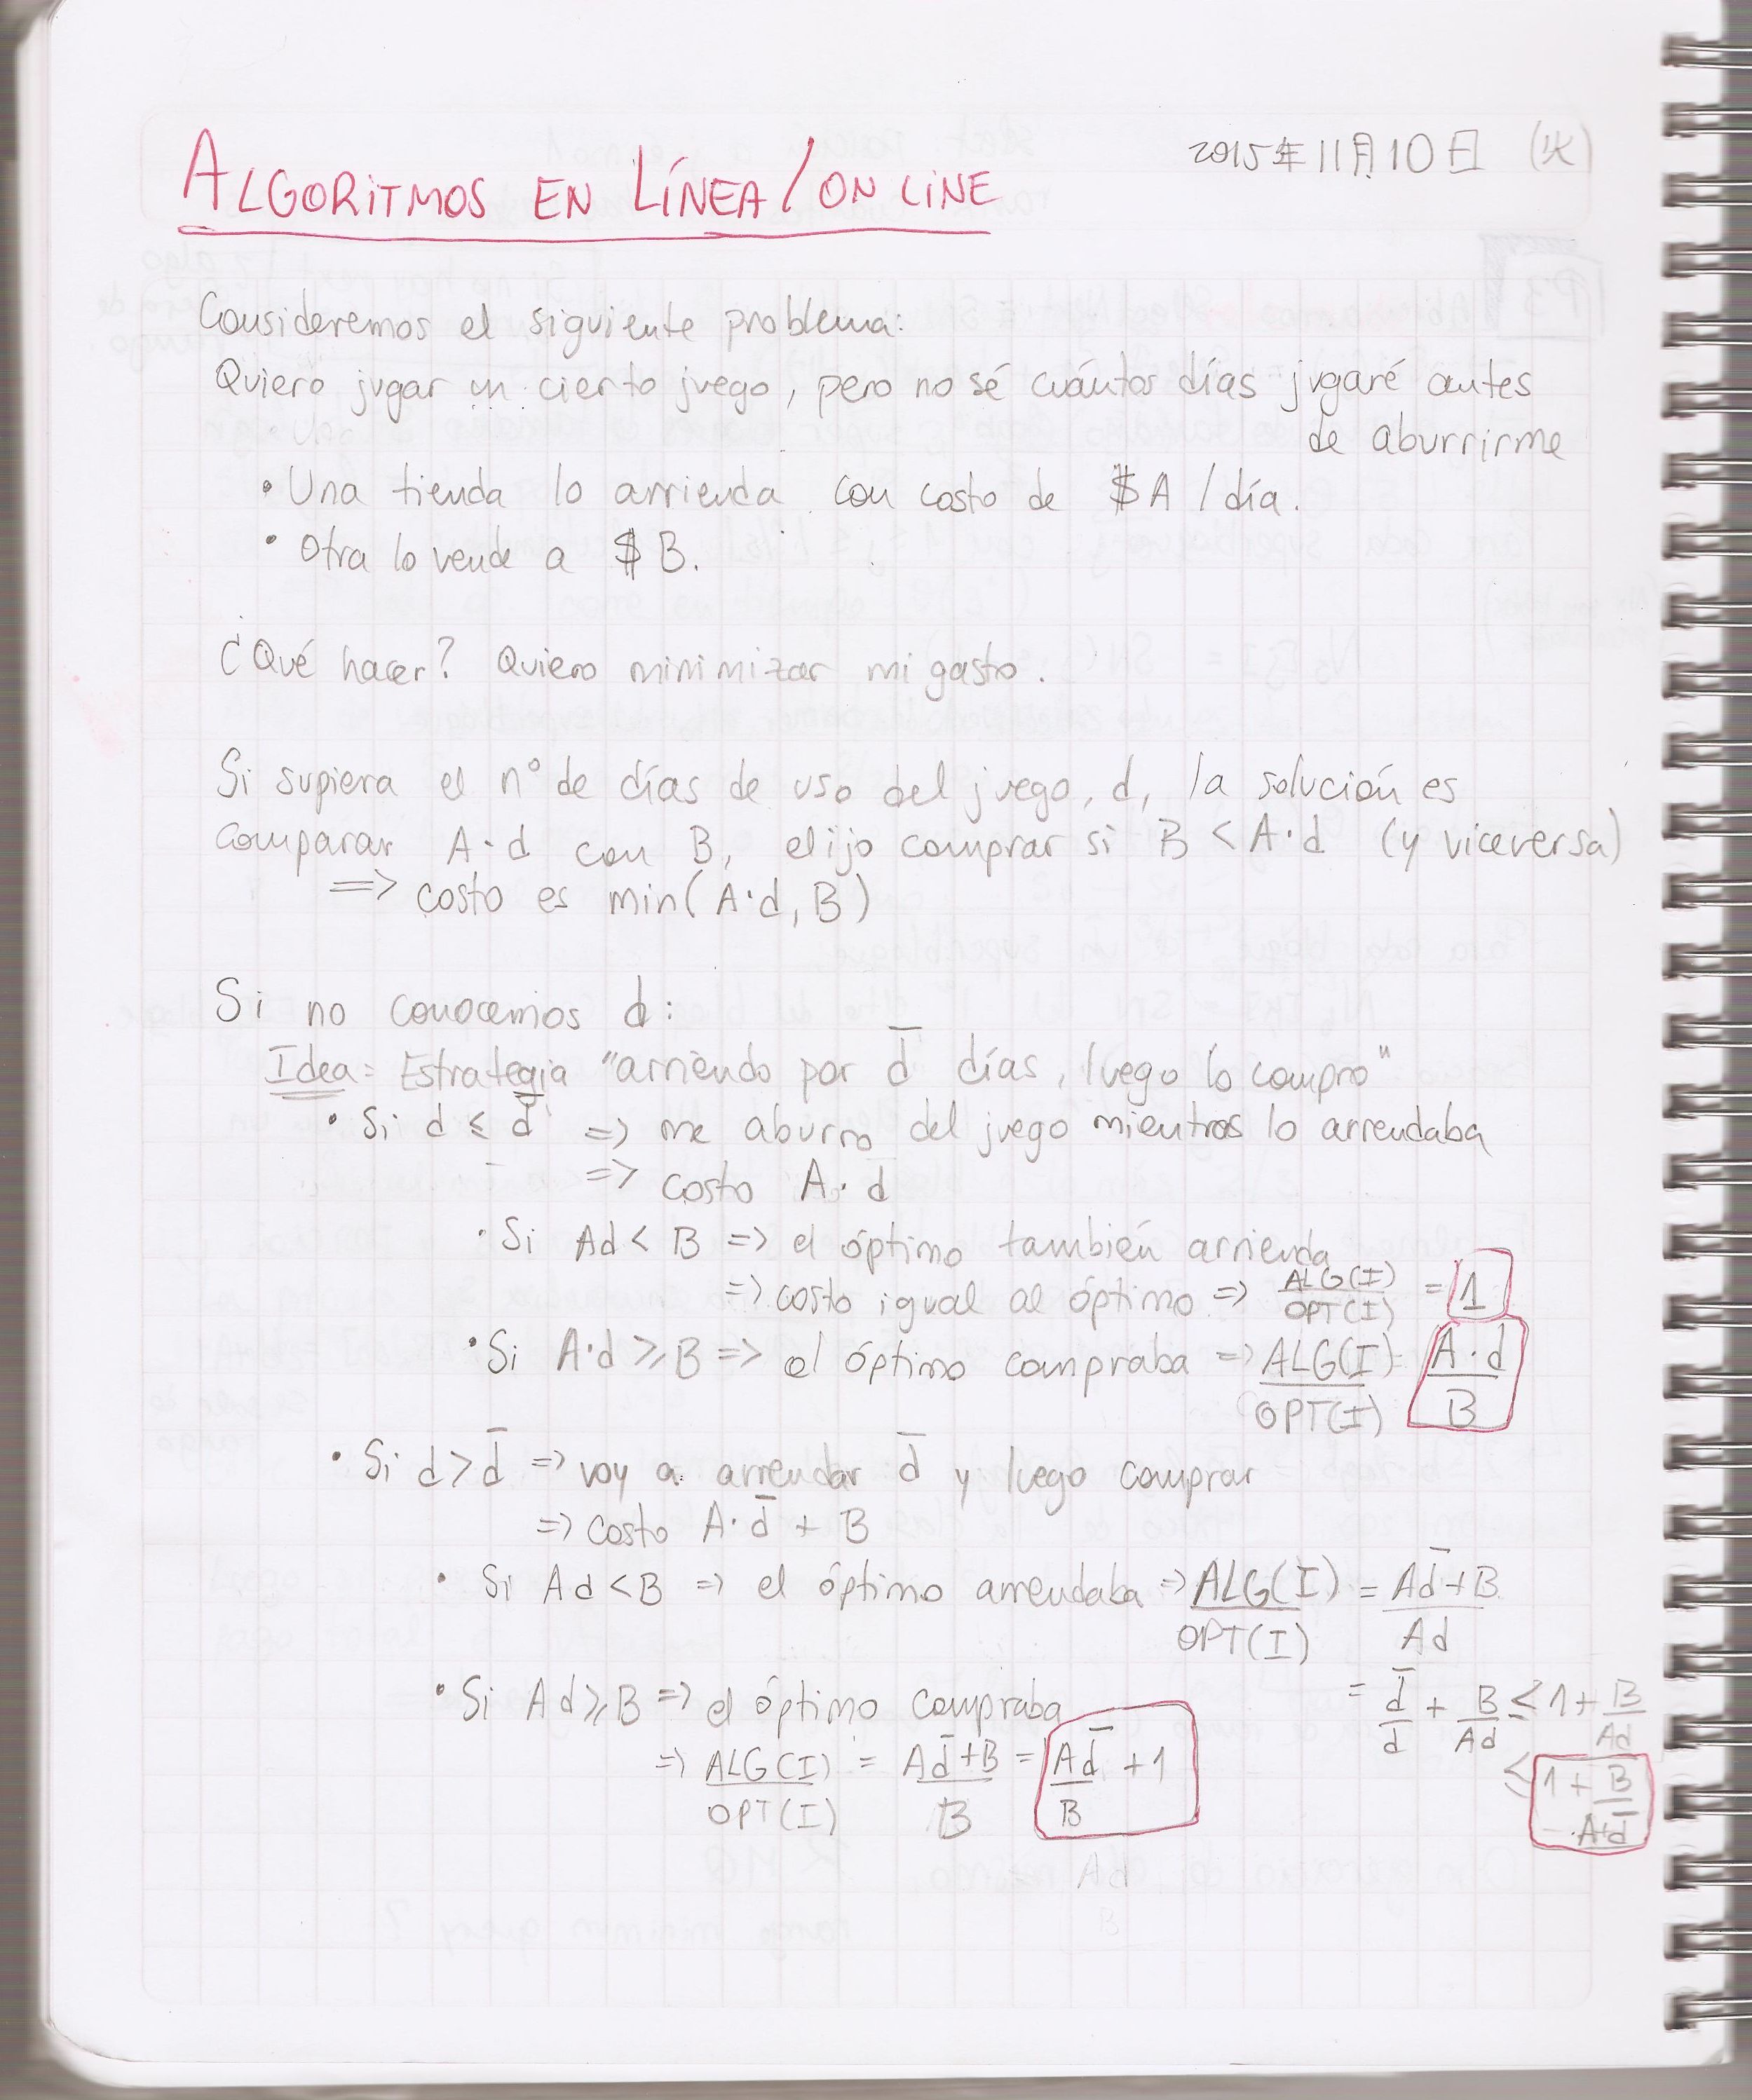 2015年11月10日 (火)
ALGORITMOS EN LÍNEA / ON LINE
Consideremos el siguiente problema:
Quiero jugar un cierto juego, pero no sé cuántos días jugaré antes
de aburrirme
• Una tienda lo arrienda con costo de $A / día.
• Otra lo vende a $B.
¿Qué hacer? Quiero minimizar mi gasto.
Si supiera el n° de días de uso del juego, d, la solución es
comparar A·d con B, elijo comprar si B < A·d (y viceversa)
=> costo es min(A·d, B)
Si no conocemos d:
Idea: Estrategia "arriendo por d̄ días, luego lo compro"
• Si d ≤ d̄ => me aburro del juego mientras lo arrendaba
=> costo A·d
• Si Ad < B => el óptimo también arrienda
=> costo igual al óptimo => ALG(I)/OPT(I) = 1
• Si A·d ≥ B => el óptimo compraba => ALG(I)/OPT(I) = A·d/B
• Si d > d̄ => voy a arrendar d̄ y luego comprar
=> costo A·d̄ + B
• Si Ad < B => el óptimo arrendaba => ALG(I)/OPT(I) = Ad̄+B/Ad
= d̄/d + B/Ad ≤ 1 + B/Ad
≤ 1 + B/A·d̄
• Si Ad ≥ B => el óptimo compraba
=> ALG(I)/OPT(I) = Ad̄+B/B = Ad̄/B + 1